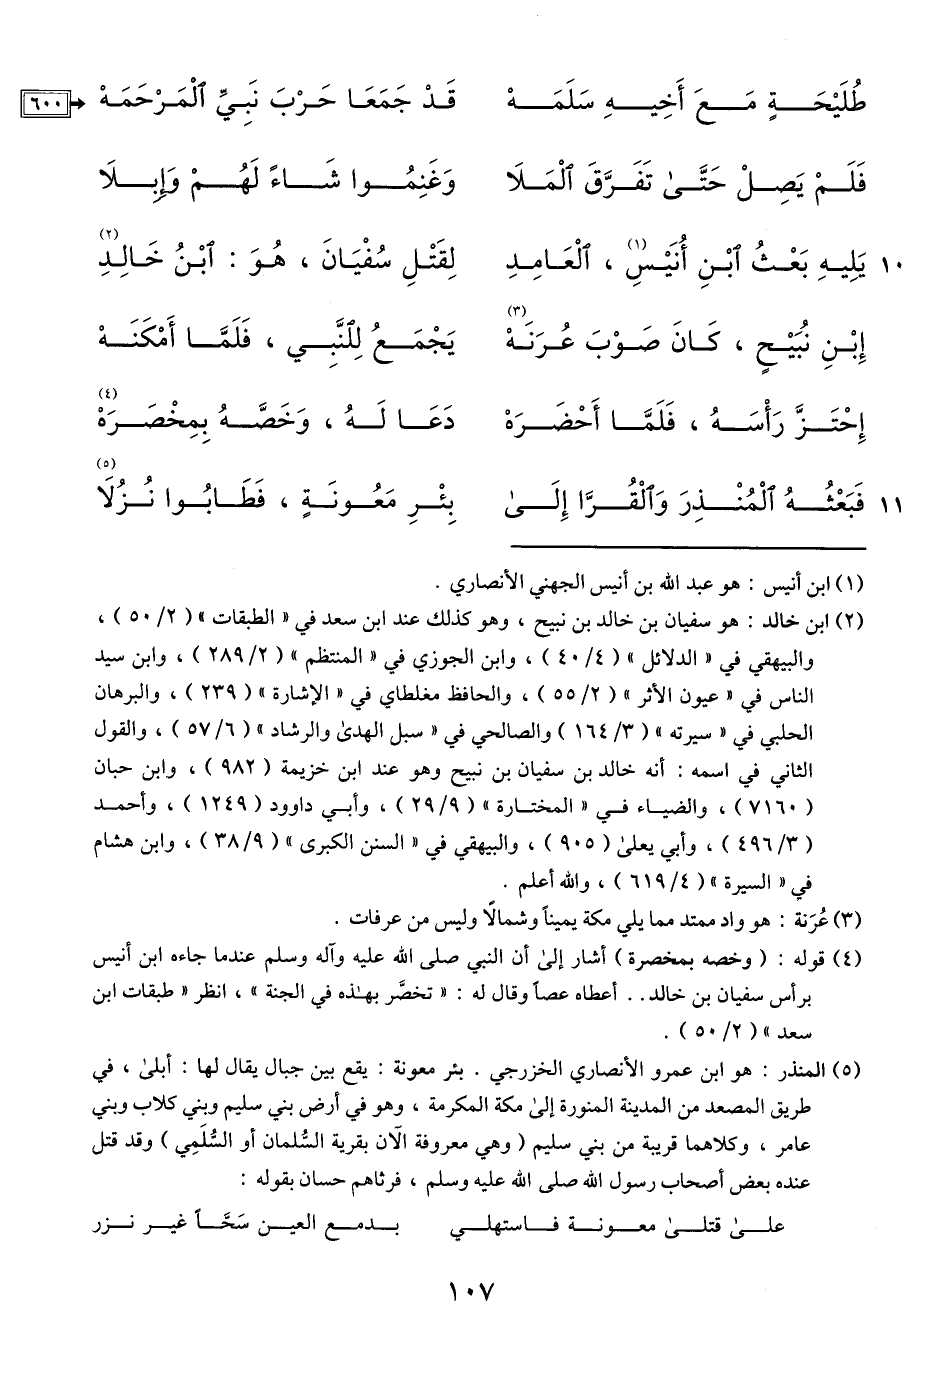 طُلَيْحَةٍ مَعَ أَخِيهِ سَلَمَهْ قَدْ جَمَعَا حَرْبَ نَبِيِّ ٱلْمَرْحَمَهْ ٦٠٠
فَلَمْ يَصِلْ حَتَّىٰ تَفَرَّقَ ٱلْمَلَا وَغَنِمُوا شَاءً لَهُمْ وَإِبِلَا
١٠ يَلِيهِ بَعْثُ ٱبْنِ أُنَيْسٍ(١) ، ٱلْعَامِدِ لِقَتْلِ سُفْيَانَ ، هُوَ : ٱبْنُ خَالِدِ(٢)
إِبْنِ نُبَيْحٍ ، كَانَ صَوْبَ عُرَنَهْ(٣) يَجْمَعُ لِلنَّبِي ، فَلَمَّا أَمْكَنَهْ
إِحْتَزَّ رَأْسَهُ ، فَلَمَّا أَحْضَرَهْ دَعَا لَهُ ، وَخَصَّهُ بِمِخْصَرَهْ(٤)
١١ فَبَعْثُهُ ٱلْمُنْذِرَ وَٱلْقُرَّا إِلَىٰ بِئْرِ مَعُونَةٍ ، فَطَابُوا نُزُلَا(٥)
(١) ابن أنيس : هو عبد الله بن أنيس الجهني الأنصاري .
(٢) ابن خالد : هو سفيان بن خالد بن نبيح ، وهو كذلك عند ابن سعد في « الطبقات » ( ٢/ ٥٠ ) ،
والبيهقي في « الدلائل » ( ٤/ ٤٠ ) ، وابن الجوزي في « المنتظم » ( ٢/ ٢٨٩ ) ، وابن سيد
الناس في « عيون الأثر » ( ٢/ ٥٥ ) ، والحافظ مغلطاي في « الإشارة » ( ٢٣٩ ) ، والبرهان
الحلبي في « سيرته » ( ٣/ ١٦٤ ) والصالحي في « سبل الهدىٰ والرشاد » ( ٦/ ٥٧ ) ، والقول
الثاني في اسمه : أنه خالد بن سفيان بن نبيح وهو عند ابن خزيمة ( ٩٨٢ ) ، وابن حبان
( ٧١٦٠ ) ، والضياء في « المختارة » ( ٩/ ٢٩ ) ، وأبي داوود ( ١٢٤٩ ) ، وأحمد
( ٣/ ٤٩٦ ) ، وأبي يعلىٰ ( ٩٠٥ ) ، والبيهقي في « السنن الكبرى » ( ٩/ ٣٨ ) ، وابن هشام
في « السيرة » ( ٤/ ٦١٩ ) ، والله أعلم .
(٣) عُرَنة : هو واد ممتد مما يلي مكة يميناً وشمالاً وليس من عرفات .
(٤) قوله : ( وخصه بمخصرة ) أشار إلىٰ أن النبي صلى الله عليه وآله وسلم عندما جاءه ابن أنيس
برأس سفيان بن خالد. . أعطاه عصاً وقال له : « تخصَّر بهٰذه في الجنة » ، انظر « طبقات ابن
سعد » ( ٢/ ٥٠ ) .
(٥) المنذر : هو ابن عمرو الأنصاري الخزرجي . بئر معونة : يقع بين جبال يقال لها : أبلىٰ ، في
طريق المصعد من المدينة المنورة إلىٰ مكة المكرمة ، وهو في أرض بني سليم وبني كلاب وبني
عامر ، وكلاهما قريبة من بني سليم ( وهي معروفة الآن بقرية السُّلمان أو السُّلَمِي ) وقد قتل
عنده بعض أصحاب رسول الله صلى الله عليه وسلم ، فرثاهم حسان بقوله :
علىٰ قتلىٰ معونة فاستهلي بدمع العين سَحّاً غير نزر
١٠٧